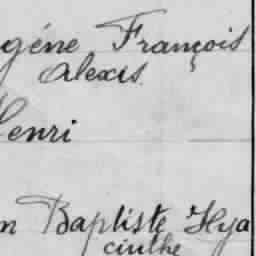 géne François
Alexis
Henri
n Baptiste Hya
cinthe